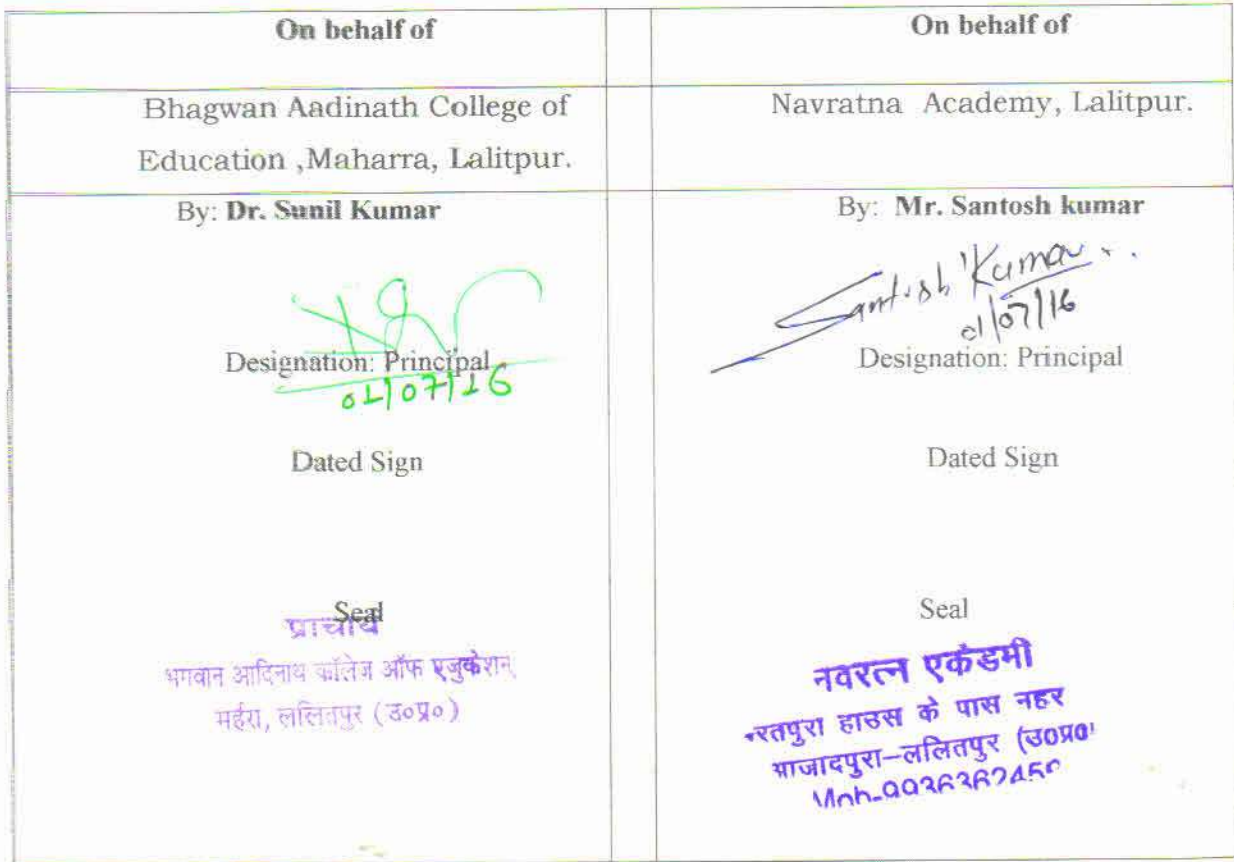 On behalf of
Bhagwan Aadinath College of
Education ,Maharra, Lalitpur.
By: Dr. Sunil Kumar
Designation: Principal
01/07/16
Dated Sign
Seal
प्राचार्य
भगवान आदिनाथ कॉलेज ऑफ एजुकेशन,
मर्हरा, ललितपुर (उ०प्र०)
On behalf of
Navratna Academy, Lalitpur.
By: Mr. Santosh kumar
Santosh Kumar
01/07/16
Designation: Principal
Dated Sign
Seal
नवरत्न एकेडमी
हाउस के पास नहर
ललितपुर (उ०प्र०